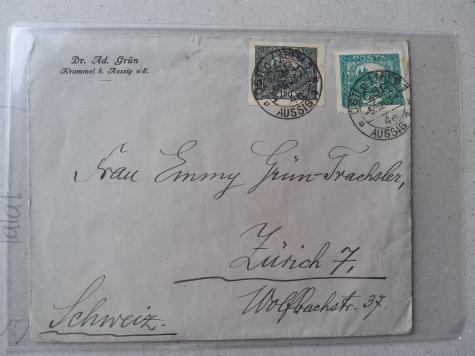 Dr. Ad. Grün
Krammel b. Aussig a/E.
AUSSIG
AUSSIG
4e
Frau Emmy Grün-Trachsler,
Zürich 7,
Wolfbachstr. 37.
Schweiz.